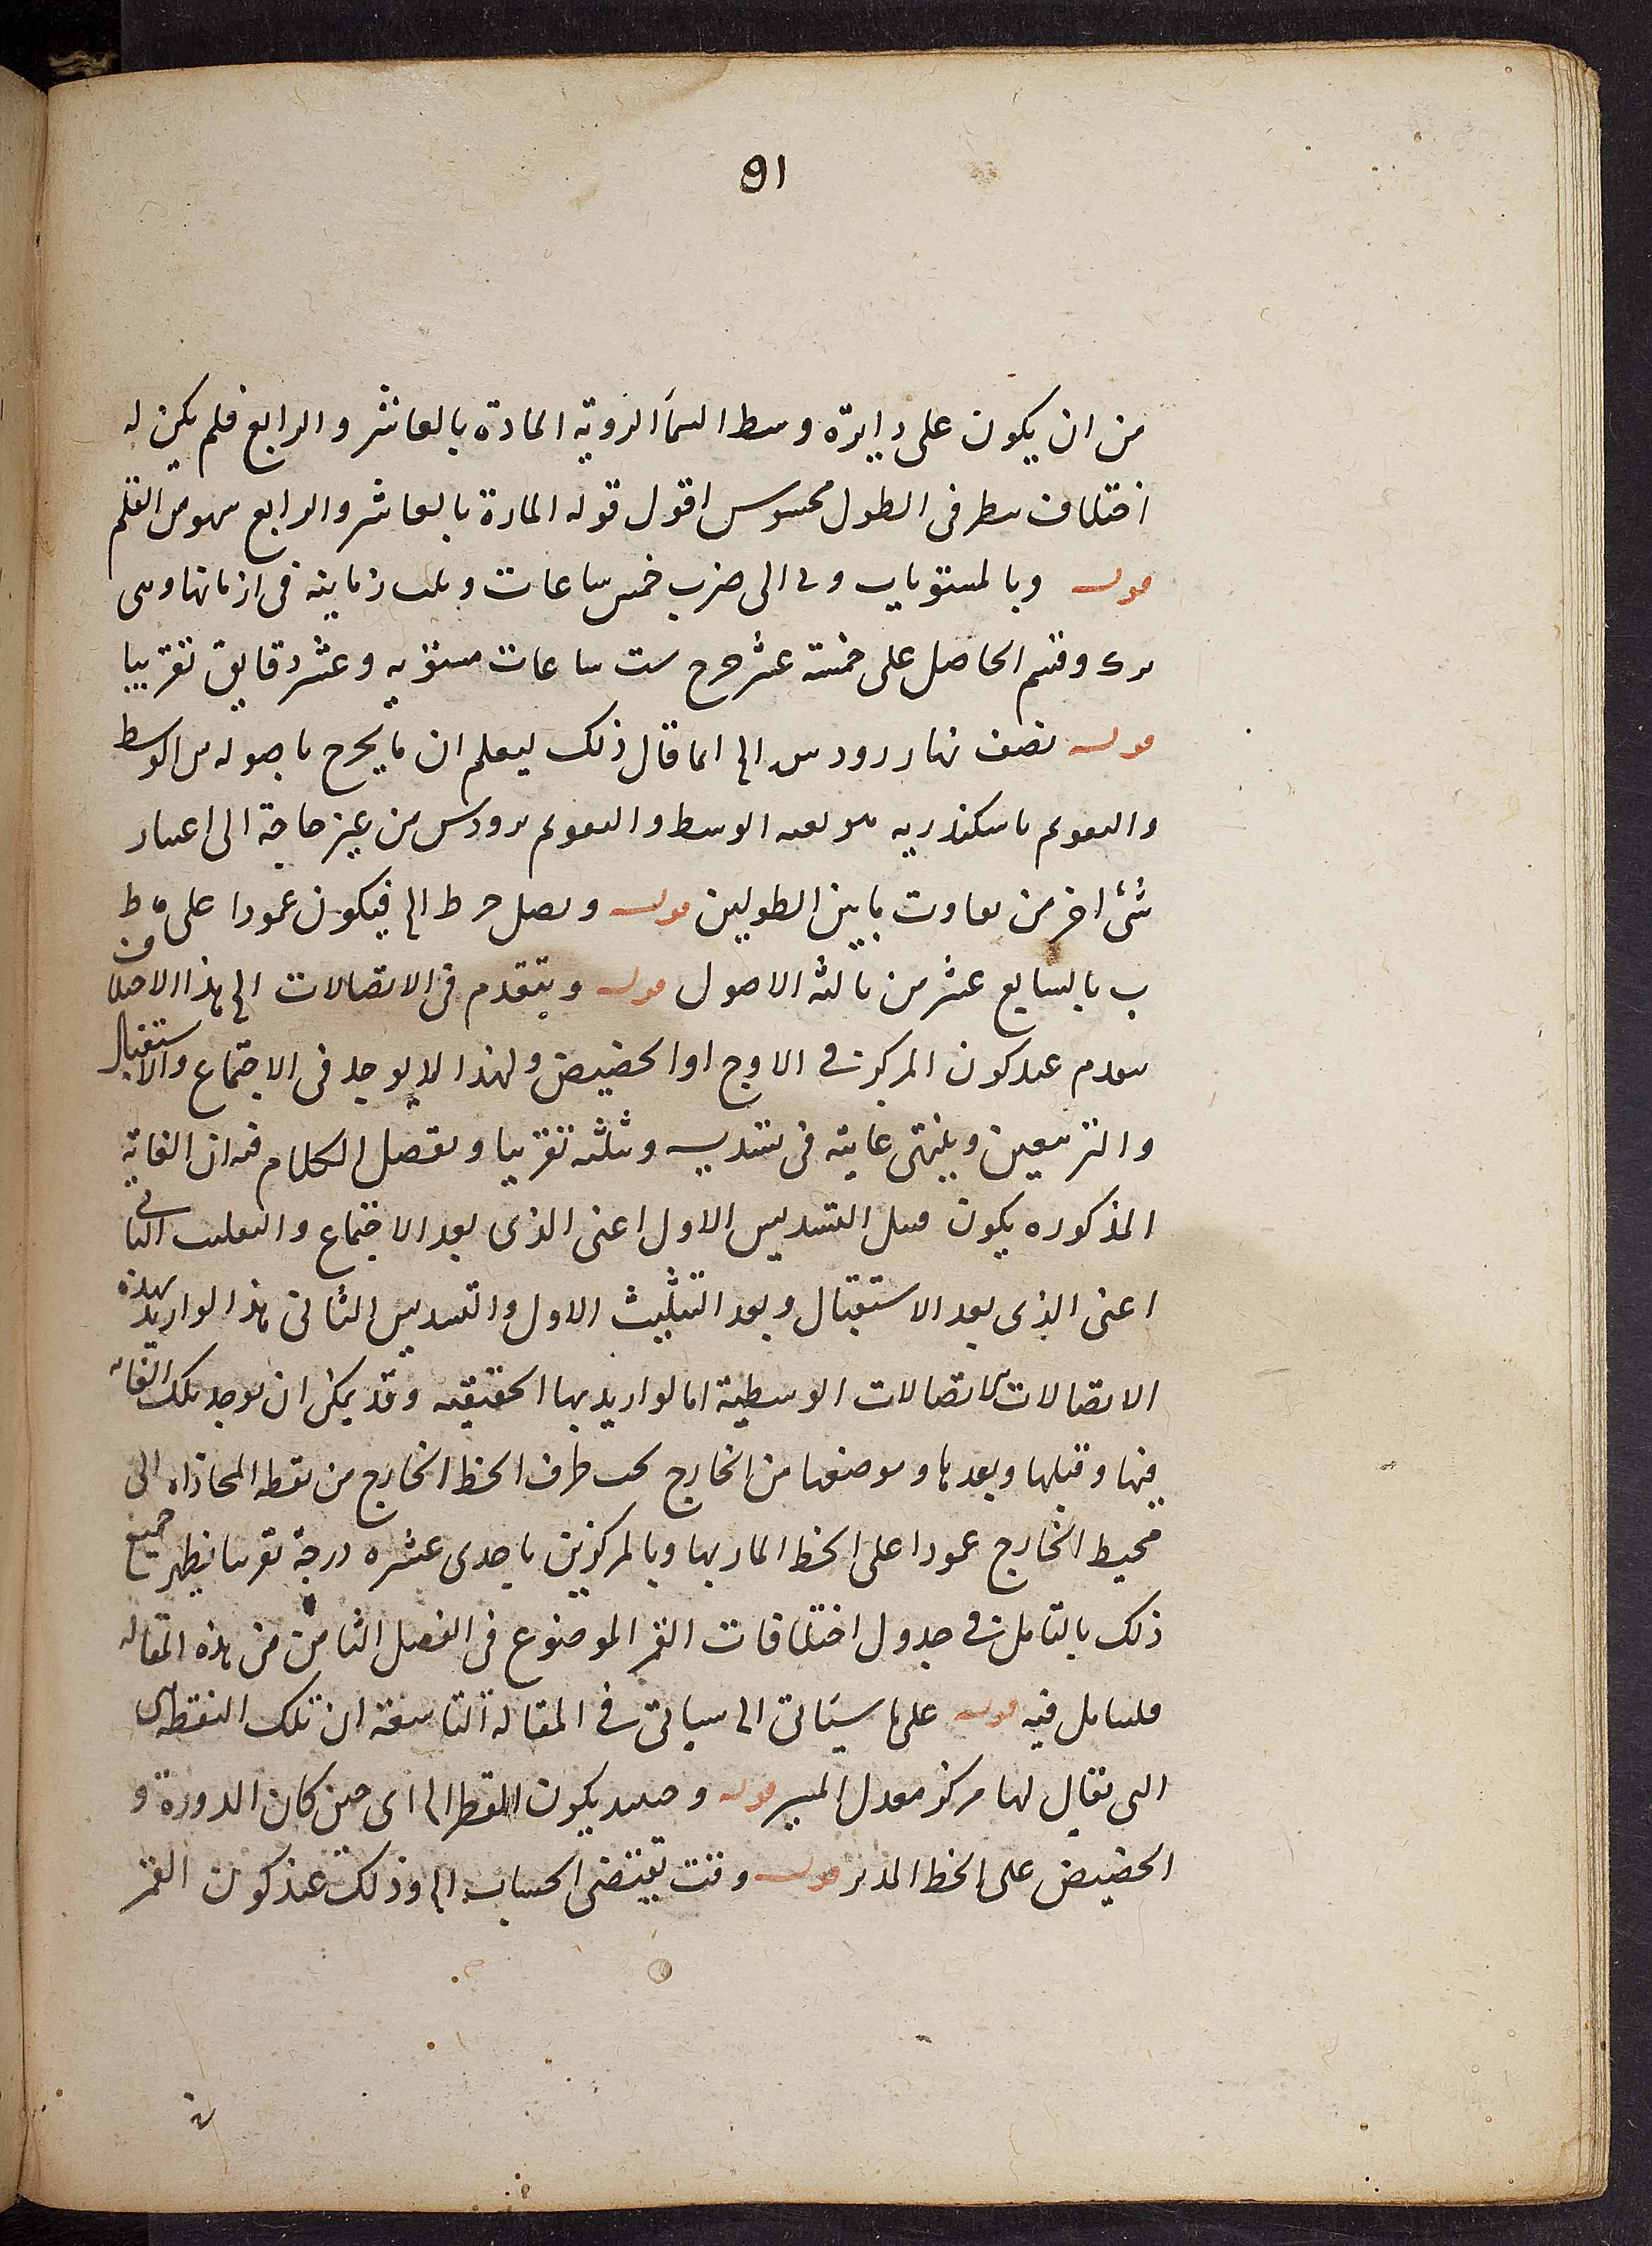 91
من ان يكون على دايرة وسط السمآ الرويه المارة بالعاشر والرابع فلم يكن له
اختلاف مطر فى الطول محسوس اقول قوله المارة بالعاشر والرابع سهو من القلم
قوله وبالمستويات و ل الى ضرب خمس ساعات وثلث زمانية فى ازمانها وهى
وقسم الحاصل على خمسة عشر خرج ست ساعات مستويه وعشر دقايق تقريبا
قوله نصف نهار رودس الى انما قال ذلك ليعلم ان ما يخرج باصوله من الوسط
والتقويم باسكندريه هو بعينه الوسط والتقويم برودس من غير حاجة الى اعتبار
شئ اخر من تفاوت ما بين الطولين قوله ونصل ح ط الى فيكون عمودا على ه ط
ب بالسابع عشر من ثالثه الاصول قوله ويتقدم فى الاتصالات الى هذا الاختلاف
ينعدم عند كون المركز فى الاوج او الحضيض ولهذا لا يوجد فى الاجتماع والاستقبال
والتربيعين وينتهى غايته فى تسديس وثلثه تقريبا وتفصيل الكلام فيه ان الغاية
المذكوره يكون قبل التسديس الاول اعنى الذى بعد الاجتماع والتثليث الثانى
اعنى الذى بعد الاستقبال وبعد التثليث الاول والتسديس الثانى هذا لو اريد بهذه
الاتصالات الاتصالات الوسطية اما لو اريد بها الحقيقيه وقد يمكن ان يوجد تلك الغايه
فيها وقبلها وبعدها وموضعها من الخارج تحت طرف الخط الخارج من نقطه المحاذاه الى
محيط الخارج عمودا على الخط المار بها وبالمركزين باحدى عشره درجة تقريبا يظهر جميع
ذلك بالتامل فى جدول اختلافات القمر الموضوع فى الفصل الثامن من هذه المقاله
فليتامل فيه قوله على ما سيَاتى الى سياتى فى المقالة التاسعة ان تلك النقطه هى
التى يقال لها مركز معدل المسير قوله وحينئذ يكون القطر الى اى حين كان الدورة و
الحضيض على الخط المدير قوله وقت يقتضى الحساب الى وذلك عند كون القمر